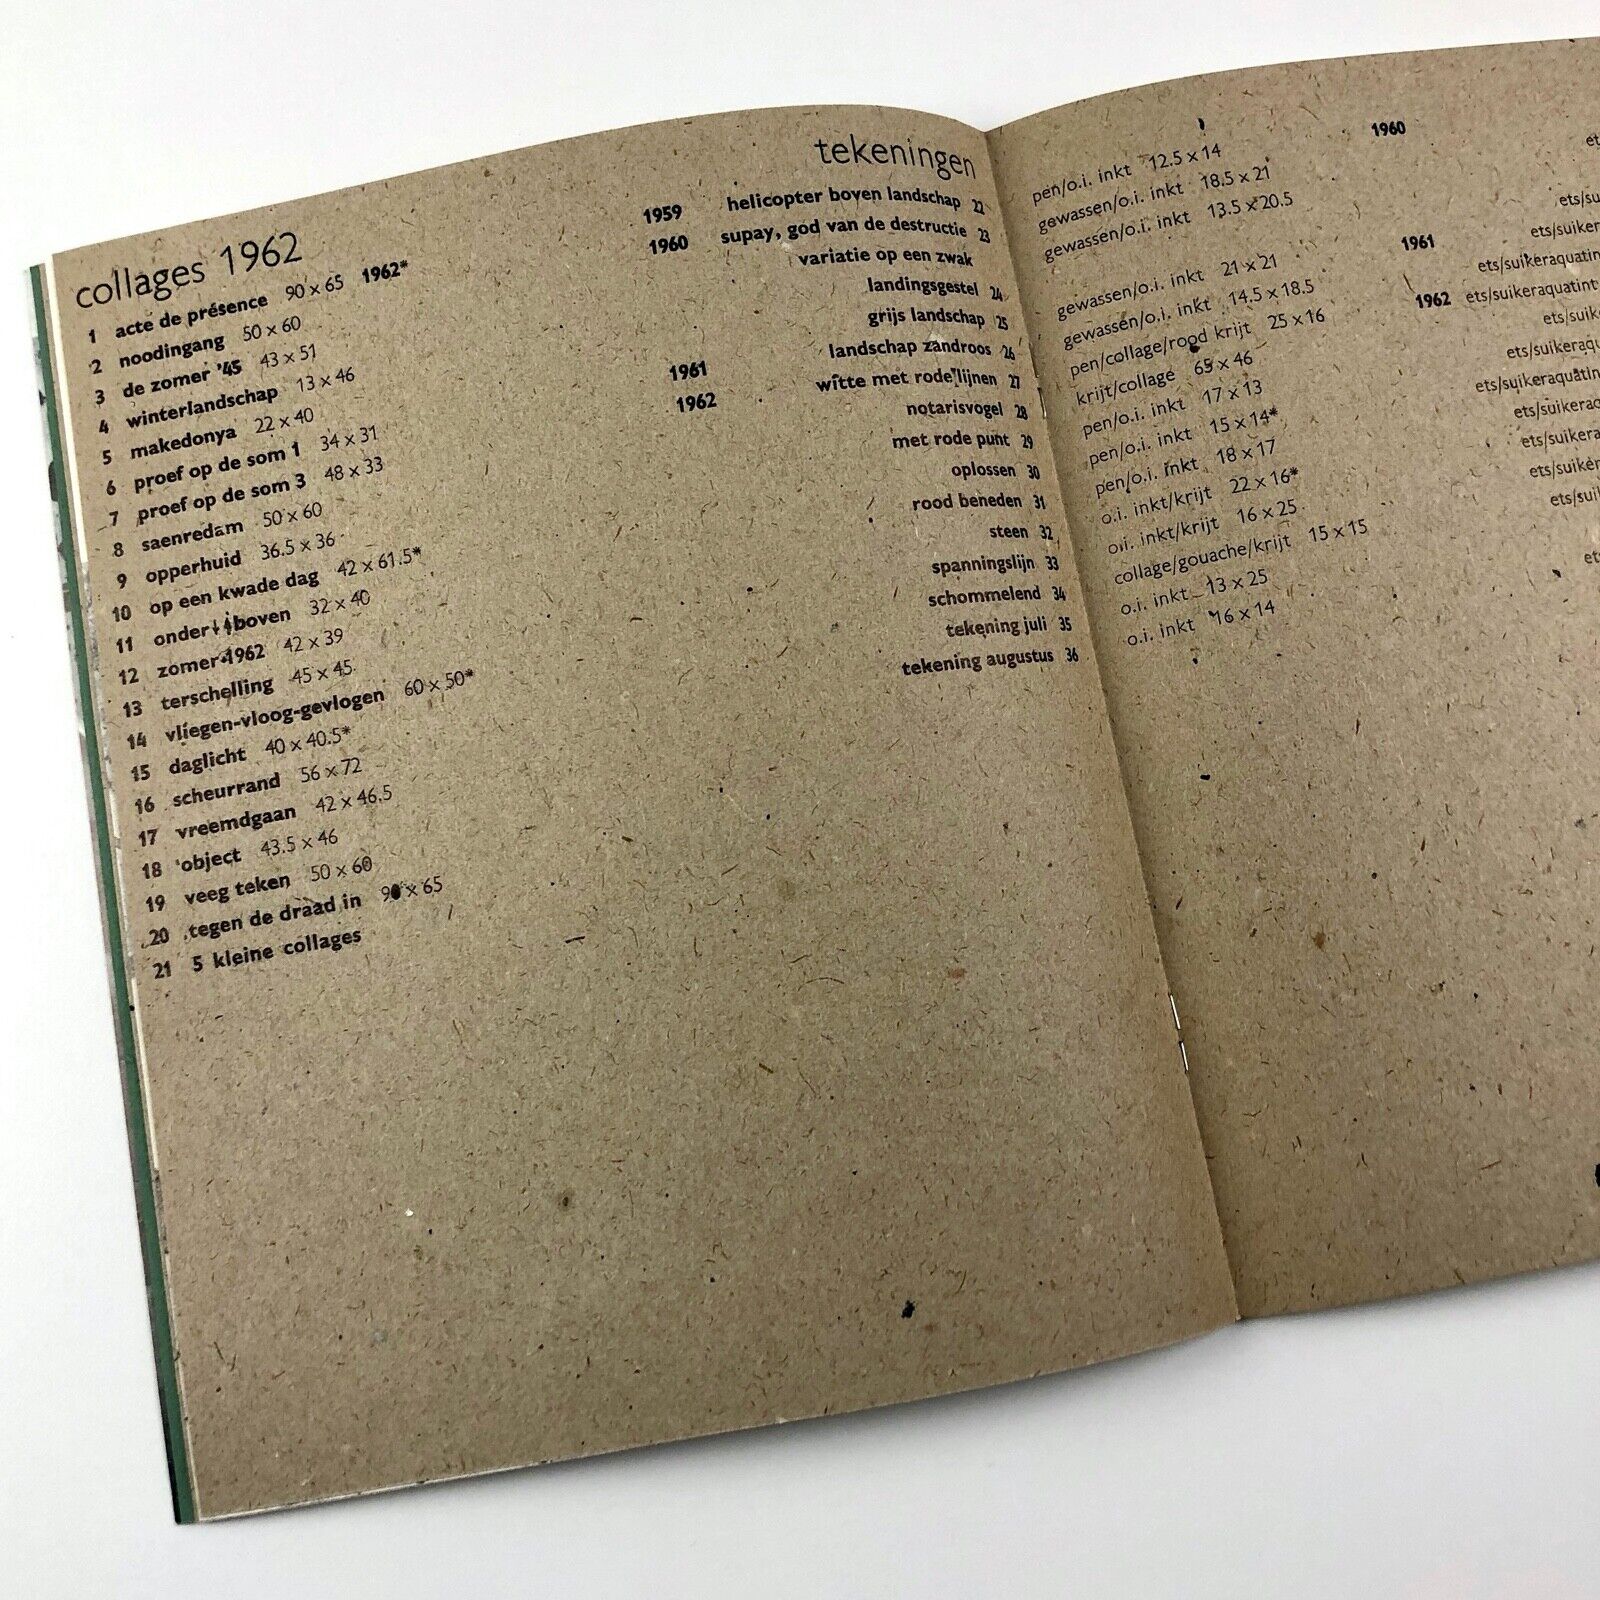 collages 1962
1 acte de présence 90 x 65 1962*
2 noodingang 50 x 60
3 de zomer '45 43 x 51
4 winterlandschap 13 x 46
5 makedonya 22 x 40
6 proef op de som 1 34 x 31
7 proef op de som 3 48 x 33
8 saenredam 50 x 60
9 opperhuid 36.5 x 36
10 op een kwade dag 42 x 61.5*
11 onder++boven 32 x 40
12 zomer 1962 42 x 39
13 terschelling 45 x 45
14 vliegen-vloog-gevlogen 60 x 50*
15 daglicht 40 x 40.5*
16 scheurrand 56 x 72
17 vreemdgaan 42 x 46.5
18 object 43.5 x 46
19 veeg teken 50 x 60
20 tegen de draad in 90 x 65
21 5 kleine collages
tekeningen
1959 helicopter boven landschap 22
1960 supay, god van de destructie 23
variatie op een zwak
landingsgestel 24
grijs landschap 25
landschap zandroos 26
1961 witte met rode lijnen 27
1962 notarisvogel 28
met rode punt 29
oplossen 30
rood beneden 31
steen 32
spanningslijn 33
schommelend 34
tekening juli 35
tekening augustus 36
pen/o.i. inkt 12.5 x 14
gewassen/o.i. inkt 18.5 x 21
gewassen/o.i. inkt 13.5 x 20.5
gewassen/o.i. inkt 21 x 21
gewassen/o.i. inkt 14.5 x 18.5
pen/collage/rood krijt 25 x 16
krijt/collage 65 x 46
pen/o.i. inkt 17 x 13
pen/o.i. inkt 15 x 14*
pen/o.i. inkt 18 x 17
o.i. inkt/krijt 22 x 16*
o.i. inkt/krijt 16 x 25
collage/gouache/krijt 15 x 15
o.i. inkt 13 x 25
o.i. inkt 16 x 14
1960 et
ets/su
1961 ets/suiker
ets/suikeraquatin
1962 ets/suikeraquatint
ets/suike
ets/suikeraqu
ets/suikeraquatin
ets/suikerac
ets/suikera
ets/suiker
ets/sui
et